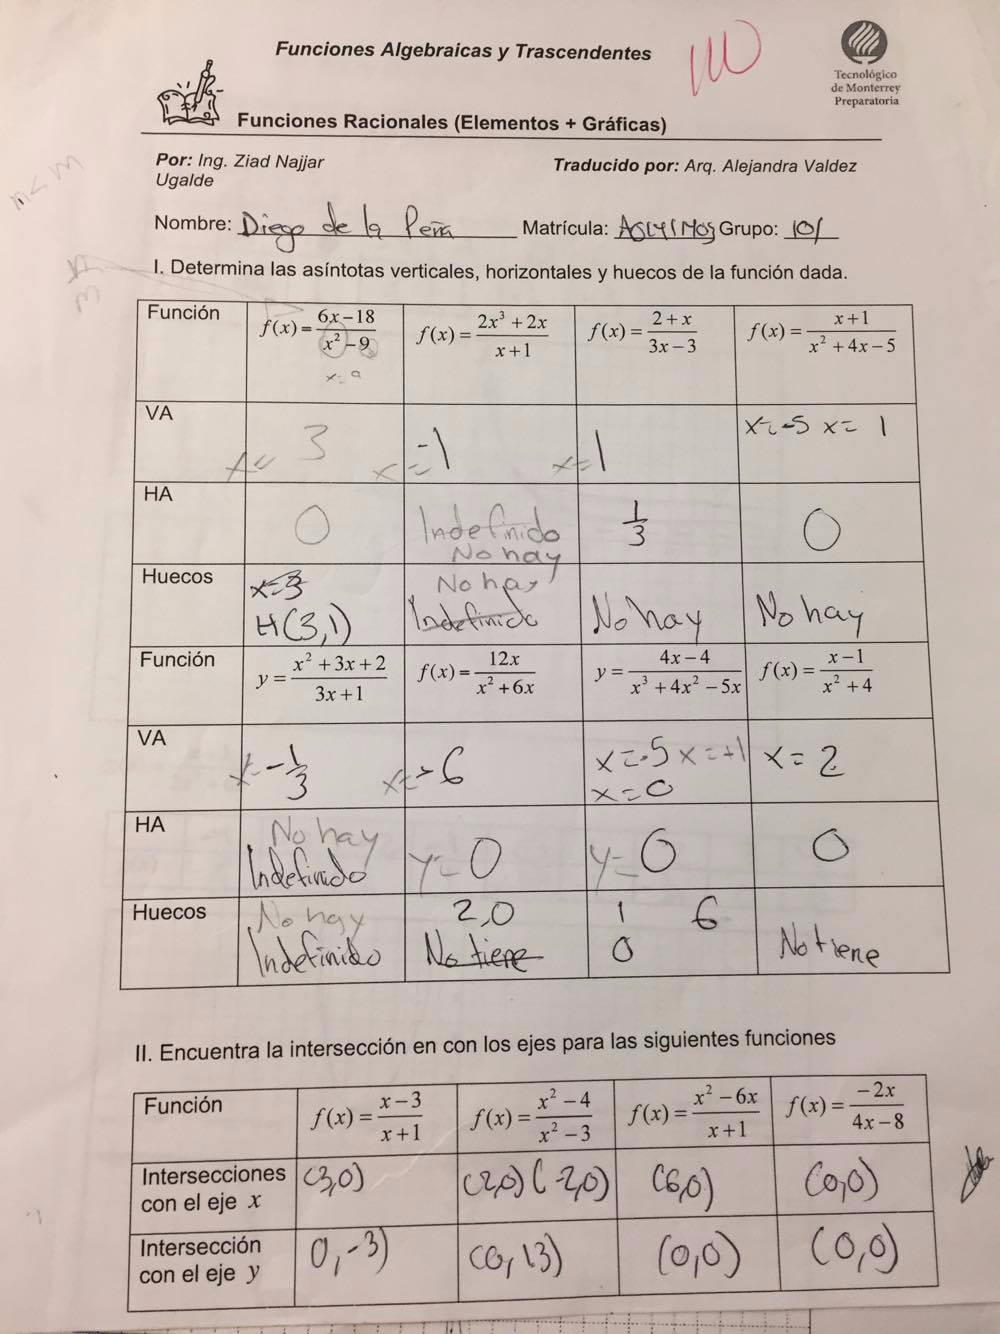 Funciones Algebraicas y Trascendentes
Tecnológico
de Monterrey
Preparatoria
Funciones Racionales (Elementos + Gráficas)
Por: Ing. Ziad Najjar
Ugalde
Traducido por: Arq. Alejandra Valdez
n<m
Nombre: Diego de la Peña Matrícula: Grupo: 101
I. Determina las asíntotas verticales, horizontales y huecos de la función dada.
Función f(x) = (6x − 18)/(x² − 9) f(x) = (2x³ + 2x)/(x + 1) f(x) = (2 + x)/(3x − 3) f(x) = (x + 1)/(x² + 4x − 5)
x=9
VA x= 3 x=-1 x=1 x=-5 x= 1
HA 0 Indefinido 1/3 0
No hay
Huecos x=3 No hay No hay No hay
H(3,1) Indefinido
Función y = (x² + 3x + 2)/(3x + 1) f(x) = 12x/(x² + 6x) y = (4x − 4)/(x³ + 4x² − 5x) f(x) = (x − 1)/(x² + 4)
VA x=-1/3 x=-6 x=-5 x=+1 x= 2
x=0
HA No hay y=0 y=0 0
Indefinido
Huecos No hay 2,0 1 6 No tiene
Indefinido No tiene 0
II. Encuentra la intersección en con los ejes para las siguientes funciones
Función f(x) = (x − 3)/(x + 1) f(x) = (x² − 4)/(x² − 3) f(x) = (x² − 6x)/(x + 1) f(x) = −2x/(4x − 8)
Intersecciones
con el eje x (3,0) (2,0) (-2,0) (6,0) (0,0)
Intersección
con el eje y 0,-3) (0,13) (0,0) (0,0)